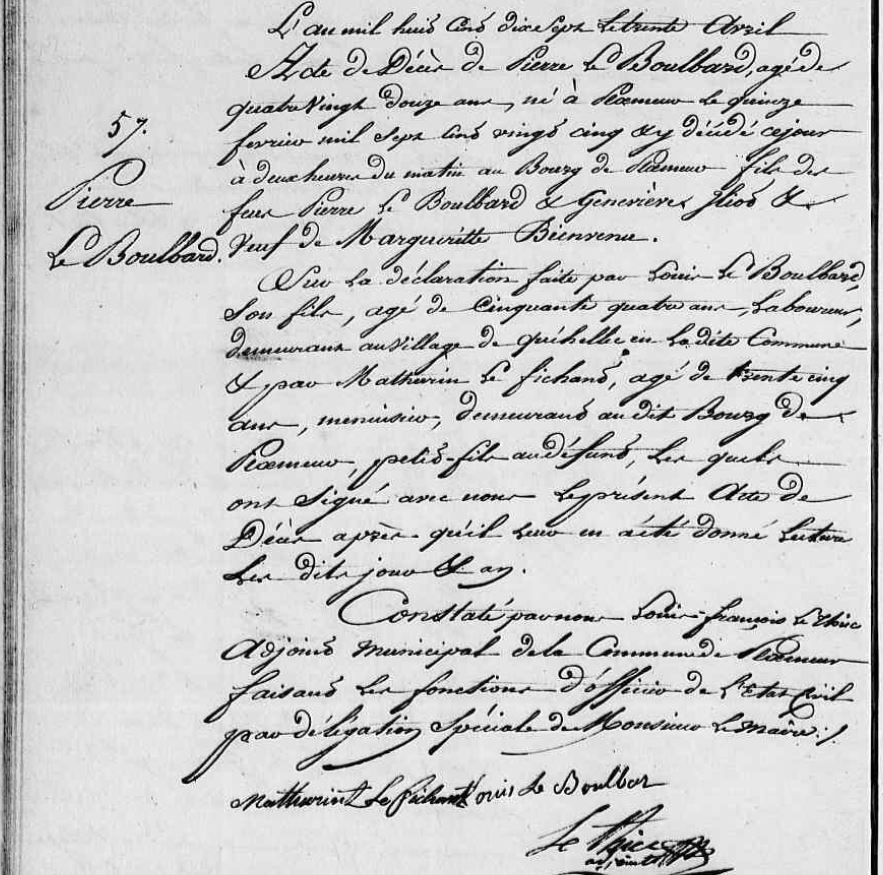 L'an mil huit Cent dix Sept Le trente Avril
Acte de Décès de Pierre Le Boulbard, agé de
quatre Vingt douze ans, né à Ploemeur le quinze
fevrier mil Sept Cent vingt cinq & y décédé ce jour
à deux heures du matin au Bourg de Ploemeur fils des
feus Pierre Le Boulbard & Geneviève &
Veuf de Marguéritte Bienvenu.
57.
Pierre
Le Boulbard.
Sur La déclaration faite par Louis Le Boulbard,
Son fils, agé de Cinquante quatre ans, Laboureur,
demeurant au Village de quéhellec en La dite Commune
& par Mathurin Le fichant, agé de trente cinq
ans, menuisier, demeurant au dit Bourg de
Ploemeur, petit-fils au défunt, Les quels
ont Signé avec nous Le présent Acte de
Décès après qu'il Leur en a été donné Lecture
Les dits jour & an.
Constaté par nous Louis-françois Le
Adjoint Municipal de la Commune de Ploemeur
faisant Les fonctions d'officier de L'Etat Civil
par délégation Spéciale de Monsieur Le maire ./.
Mathurin Le Fichant Louis Le Boulbar
Le
adjoint